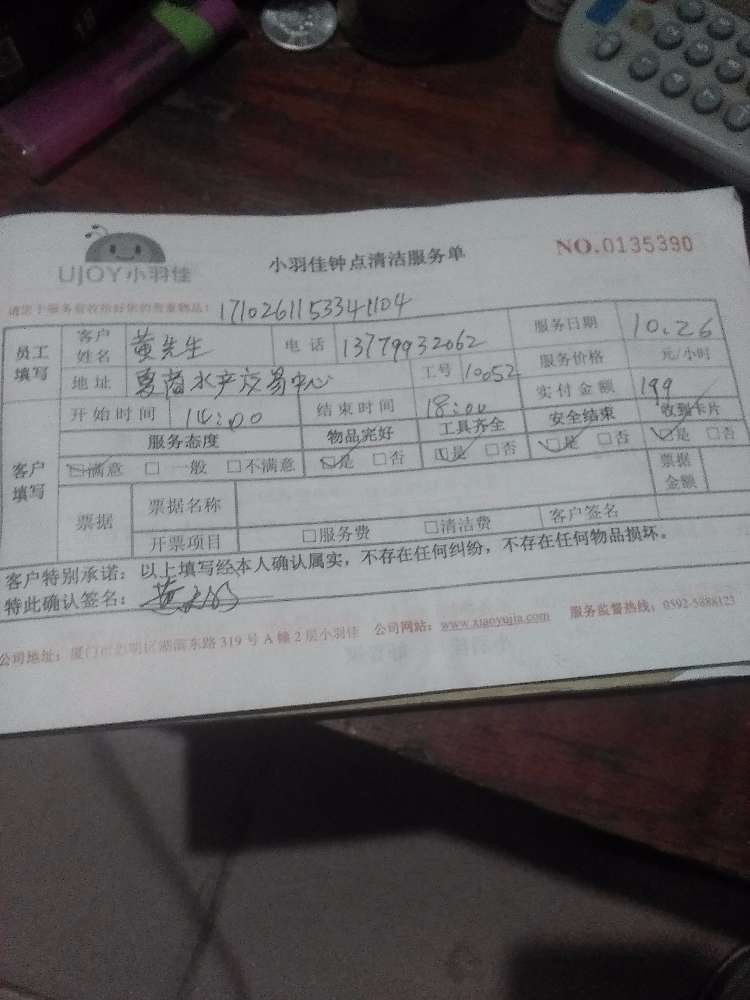 UJOY小羽佳
小羽佳钟点清洁服务单
NO.0135390
1710261153341104
员工填写 客户姓名 黄先生 电话 13779932062 服务日期 10.26
地址 夏商水产交易中心 工号 10052 服务价格 元/小时
客户填写 开始时间 14:00 结束时间 18:00 实付金额 199
服务态度 物品完好 工具齐全 安全结束 收到卡片
☑满意 □一般 □不满意 ☑是 □否 ☑是 □否 ☑是 □否 ☑是 □否
票据 票据名称 票据金额
开票项目 □服务费 □清洁费 客户签名
客户特别承诺：以上填写经本人确认属实，不存在任何纠纷，不存在任何物品损坏。
特此确认签名：
公司地址：厦门市思明区湖滨东路319号A幢2层小羽佳 公司网站：www.xiaoyujia.com 服务监督热线：0592-5888123